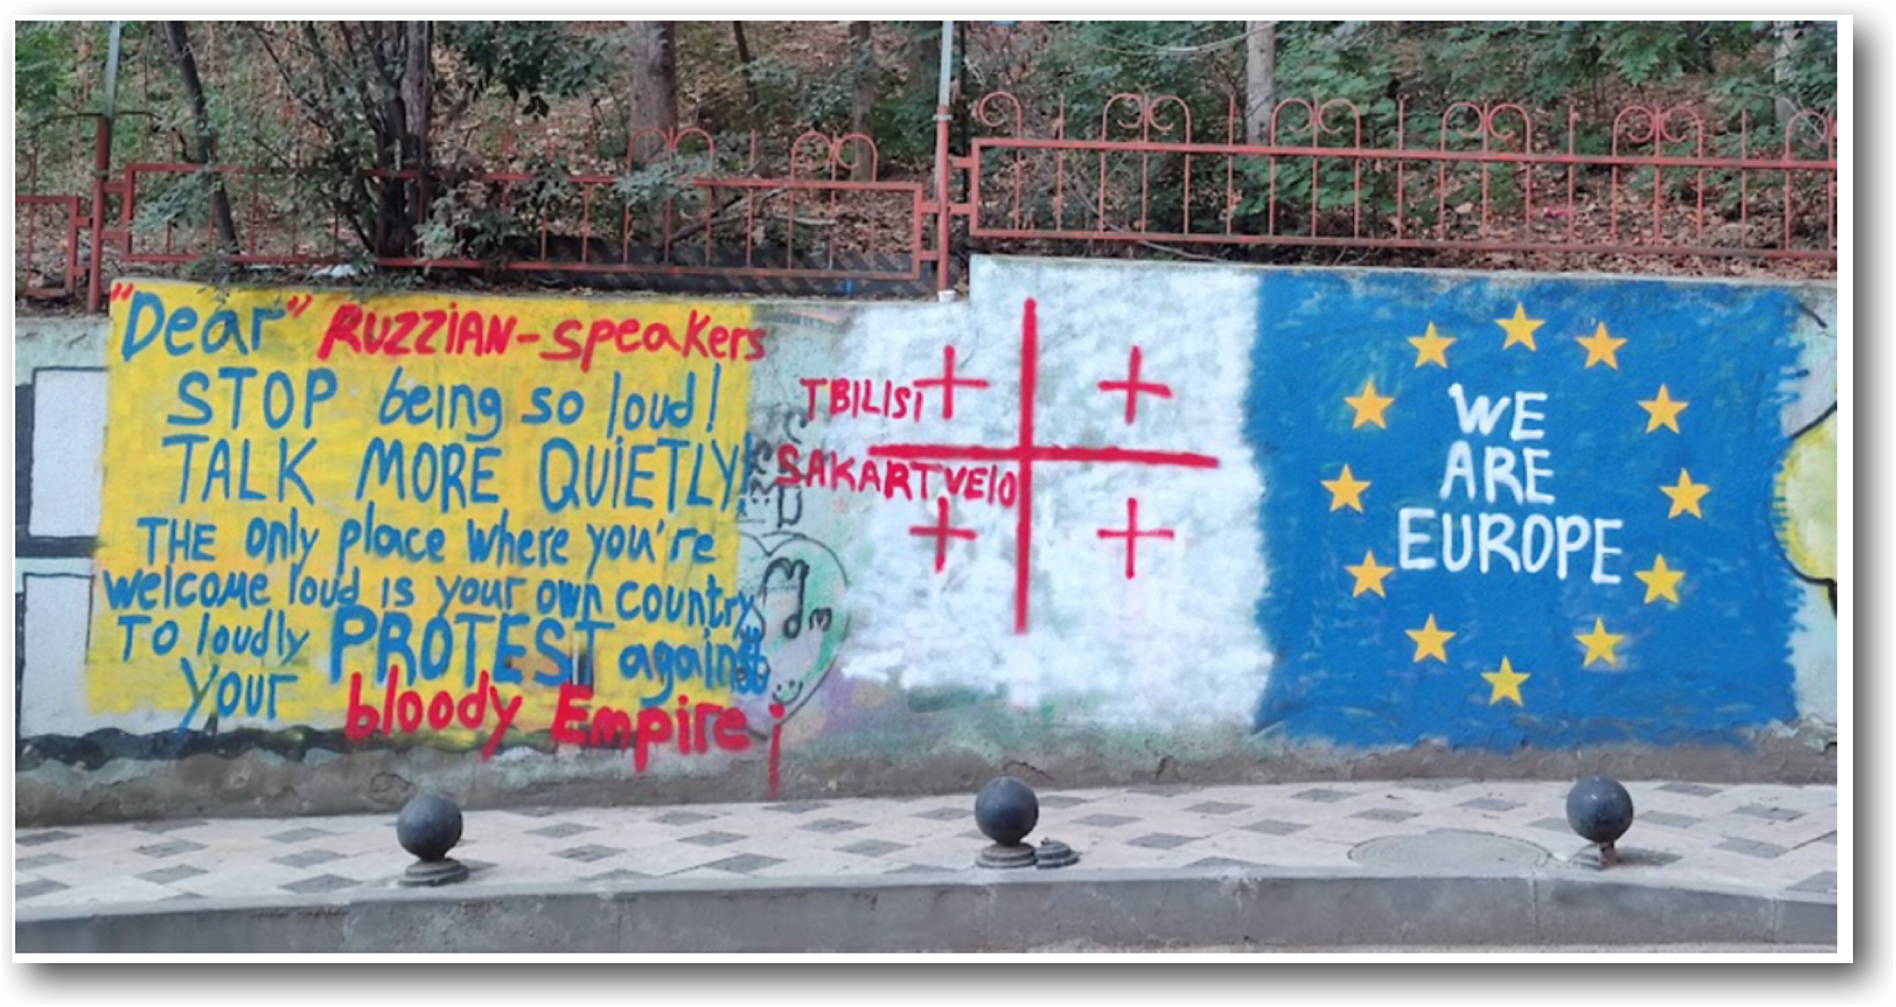 "Dear" RUZZIAN-speakers
STOP being so loud!
TALK MORE QUIETLY!
THE only place where you're
welcome loud is your own country
To loudly PROTEST against
your bloody Empire¡
TBILISI
SAKARTVElO
WE
ARE
EUROPE